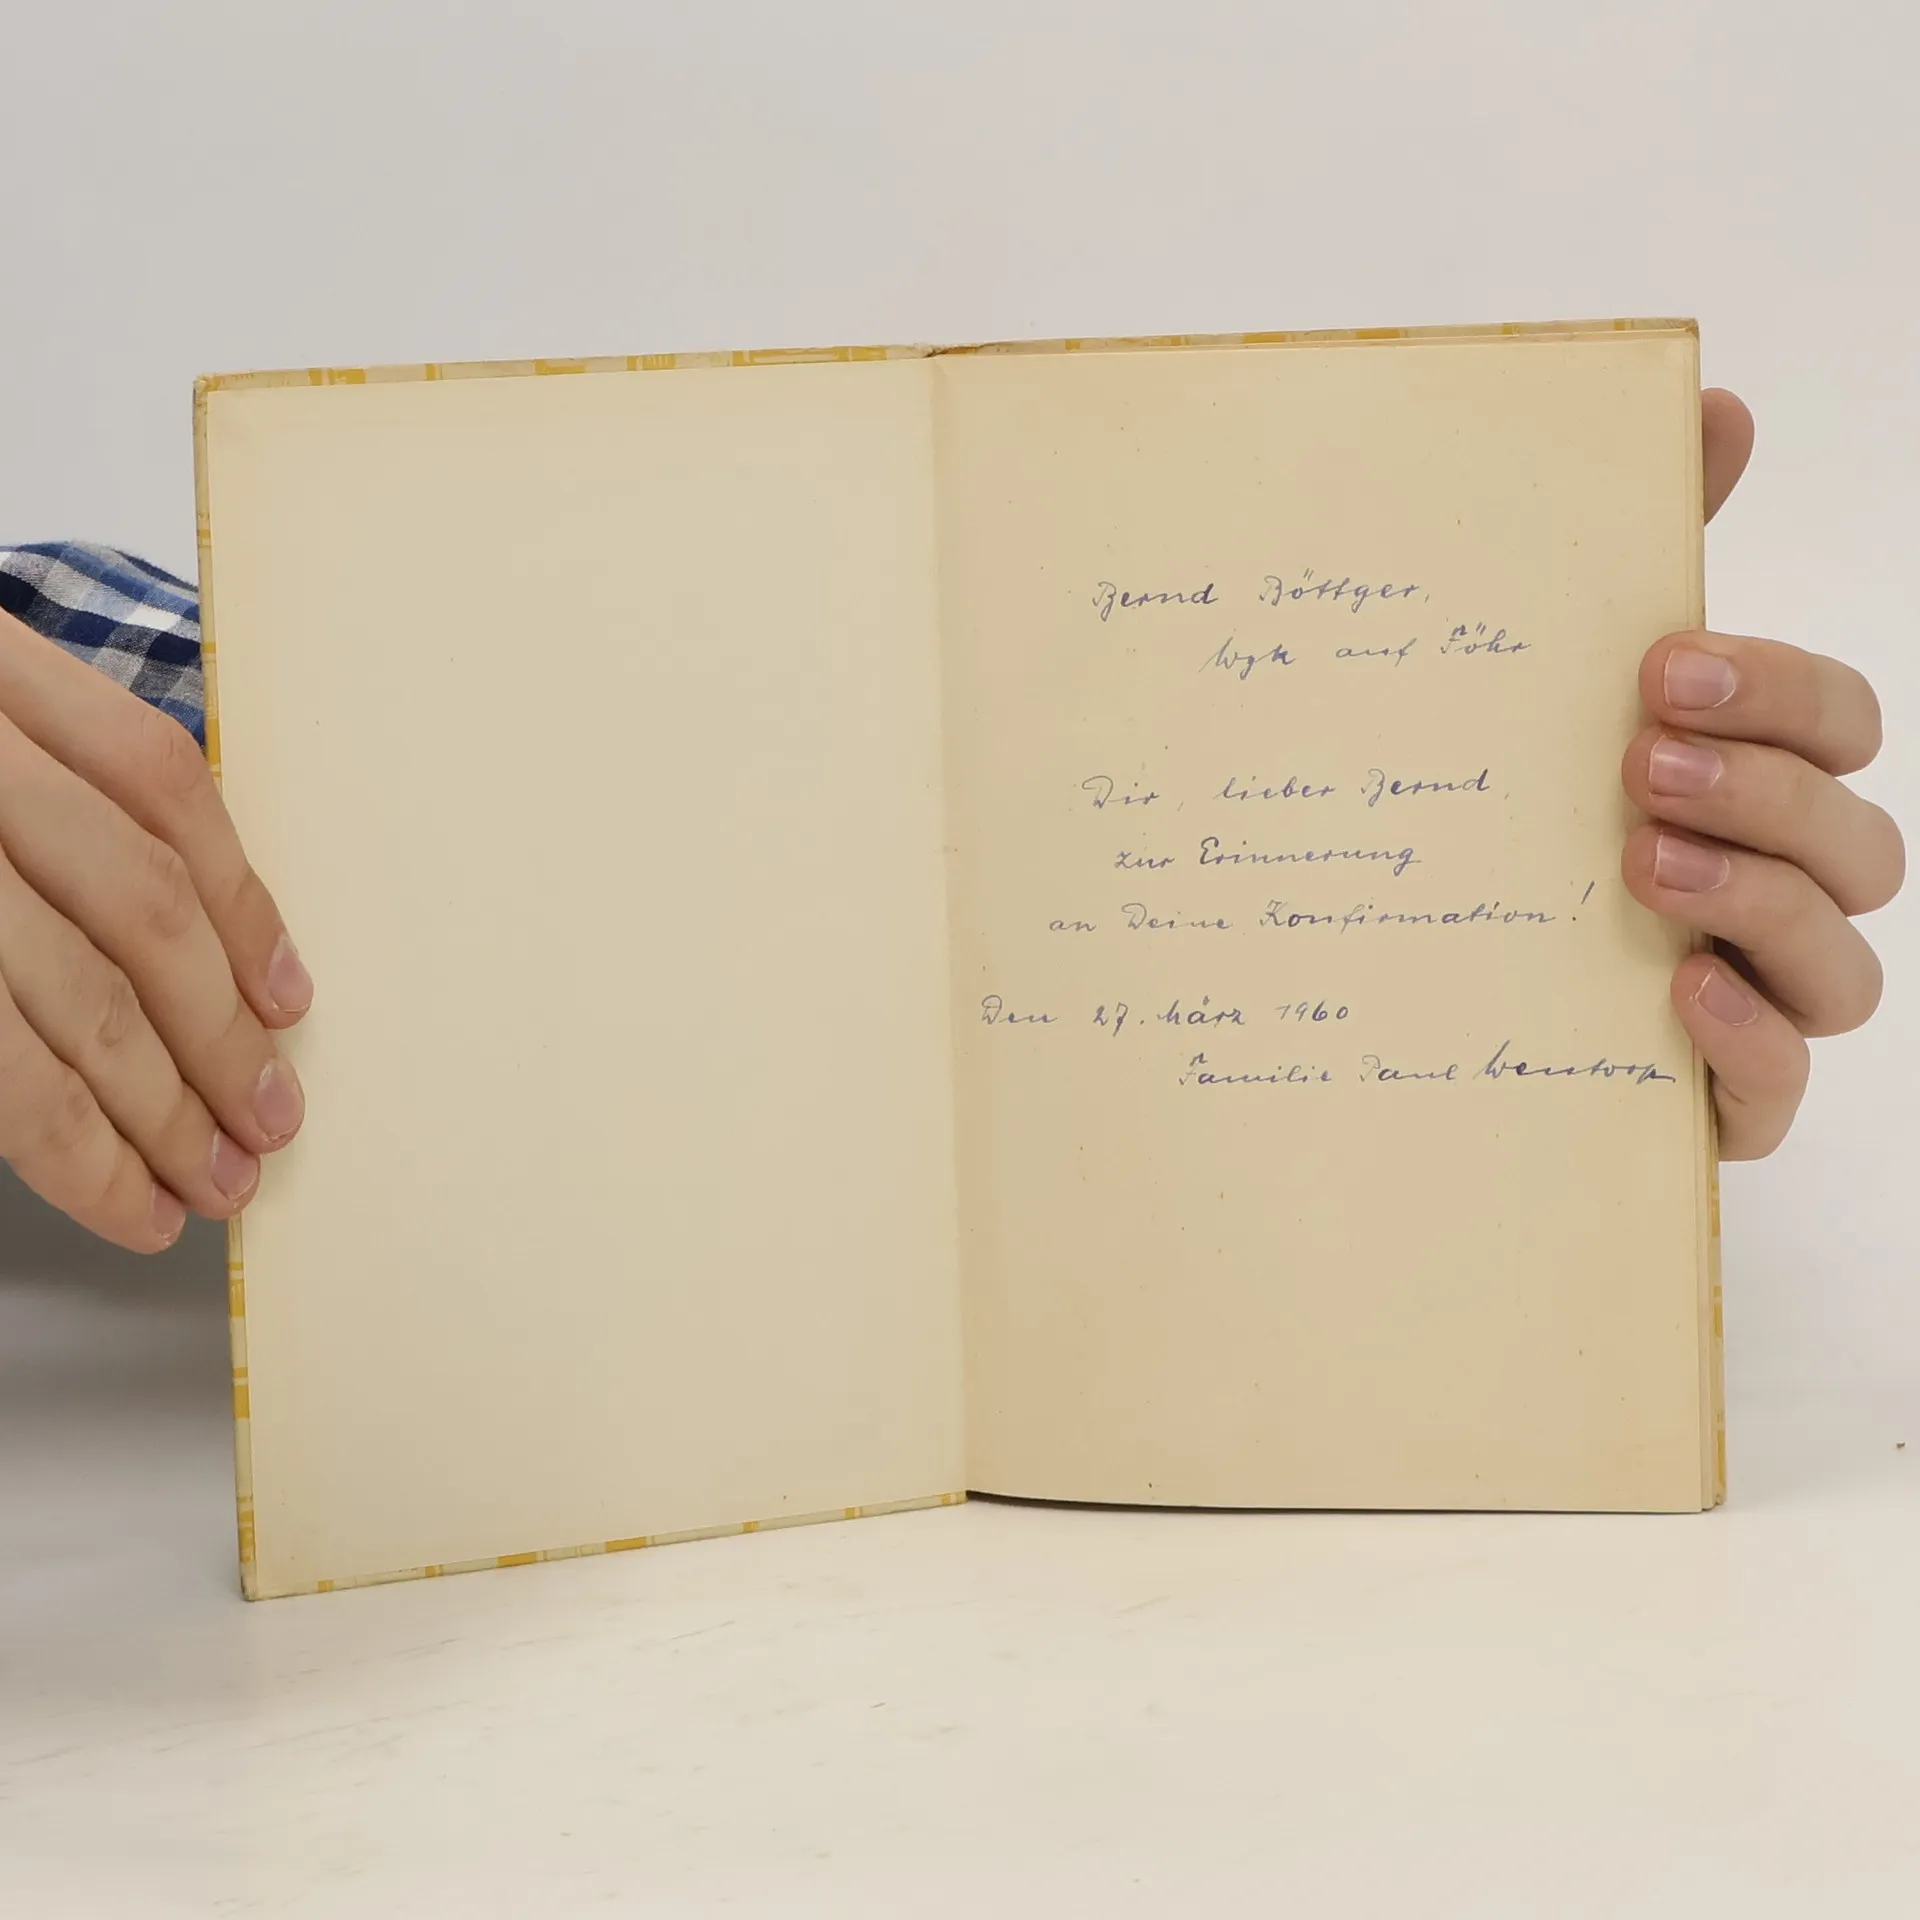 Bernd Böttger,
Wyk auf Föhr
Dir, lieber Bernd,
zur Erinnerung
an Deine Konfirmation!
Den 27. März 1960
Familie Paul Wentorp